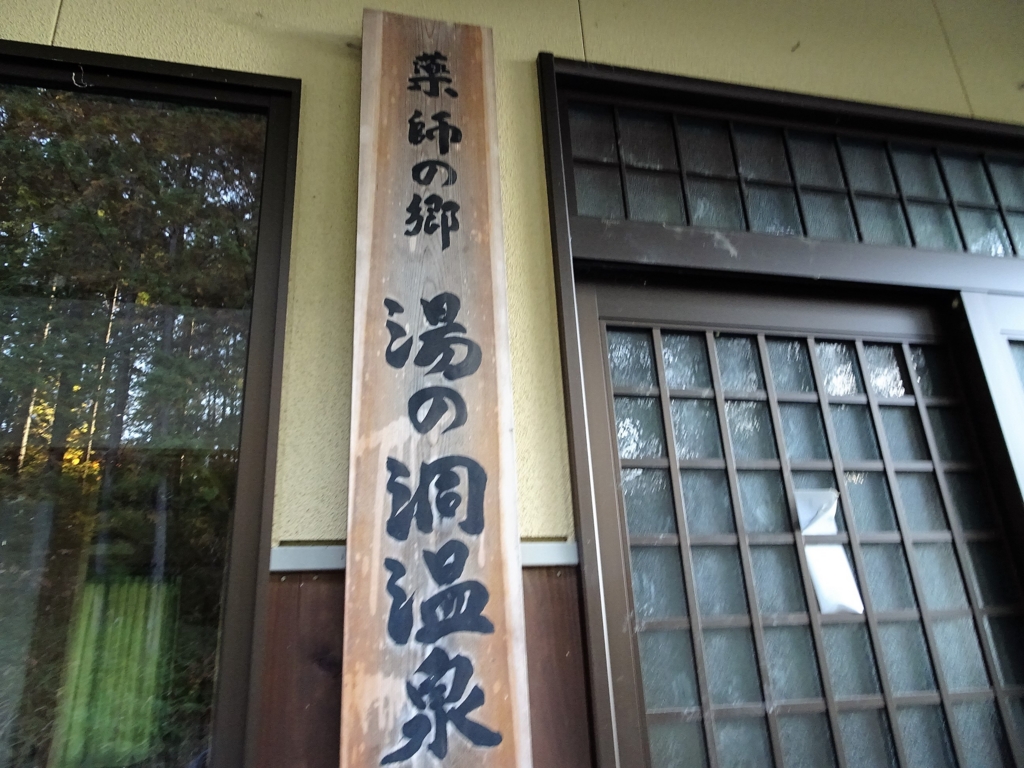 薬師の郷 湯の洞温泉